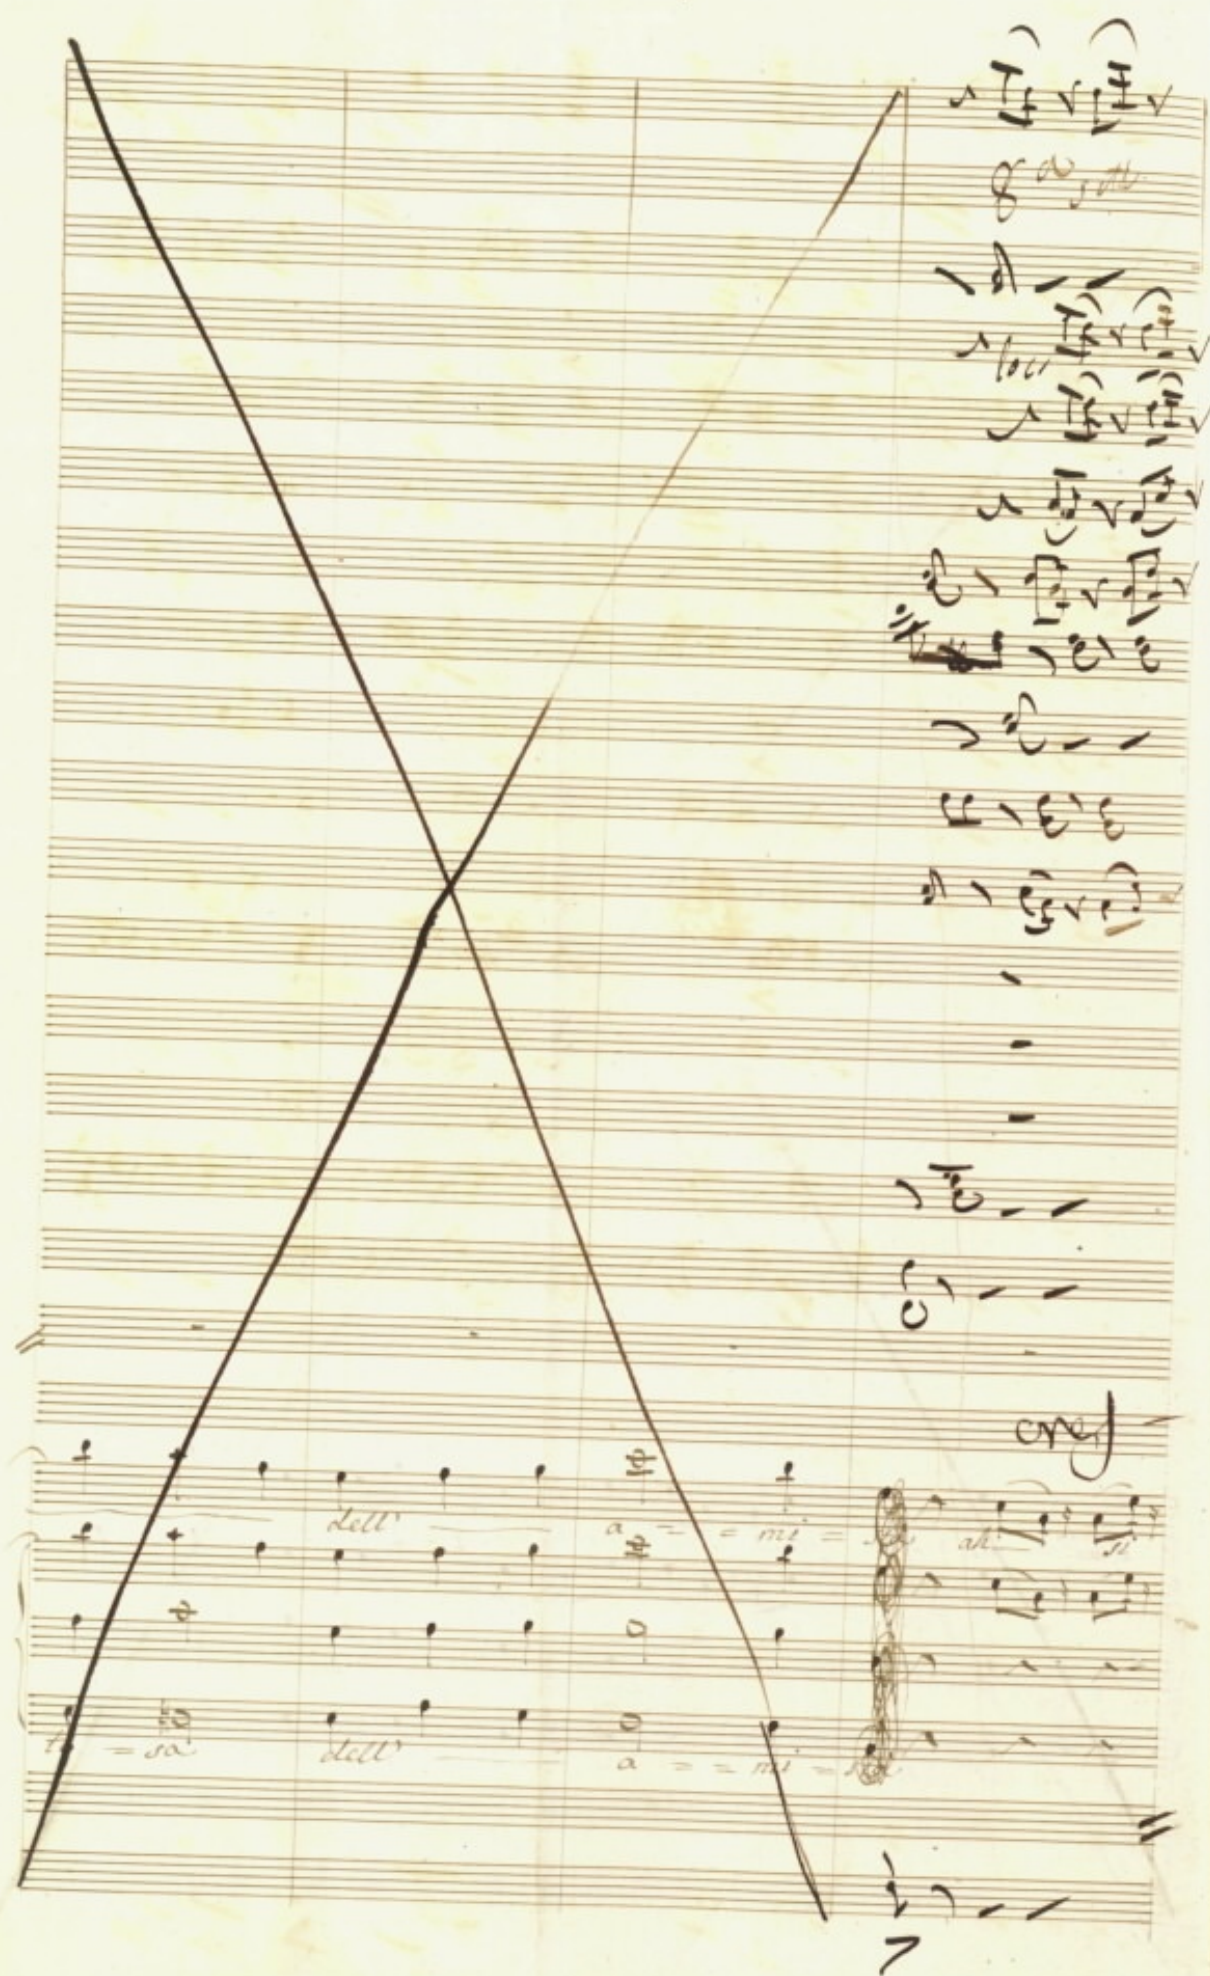 8a
loco
cres
dell' a = = mi = ah si
= sa dell' a = = mi =